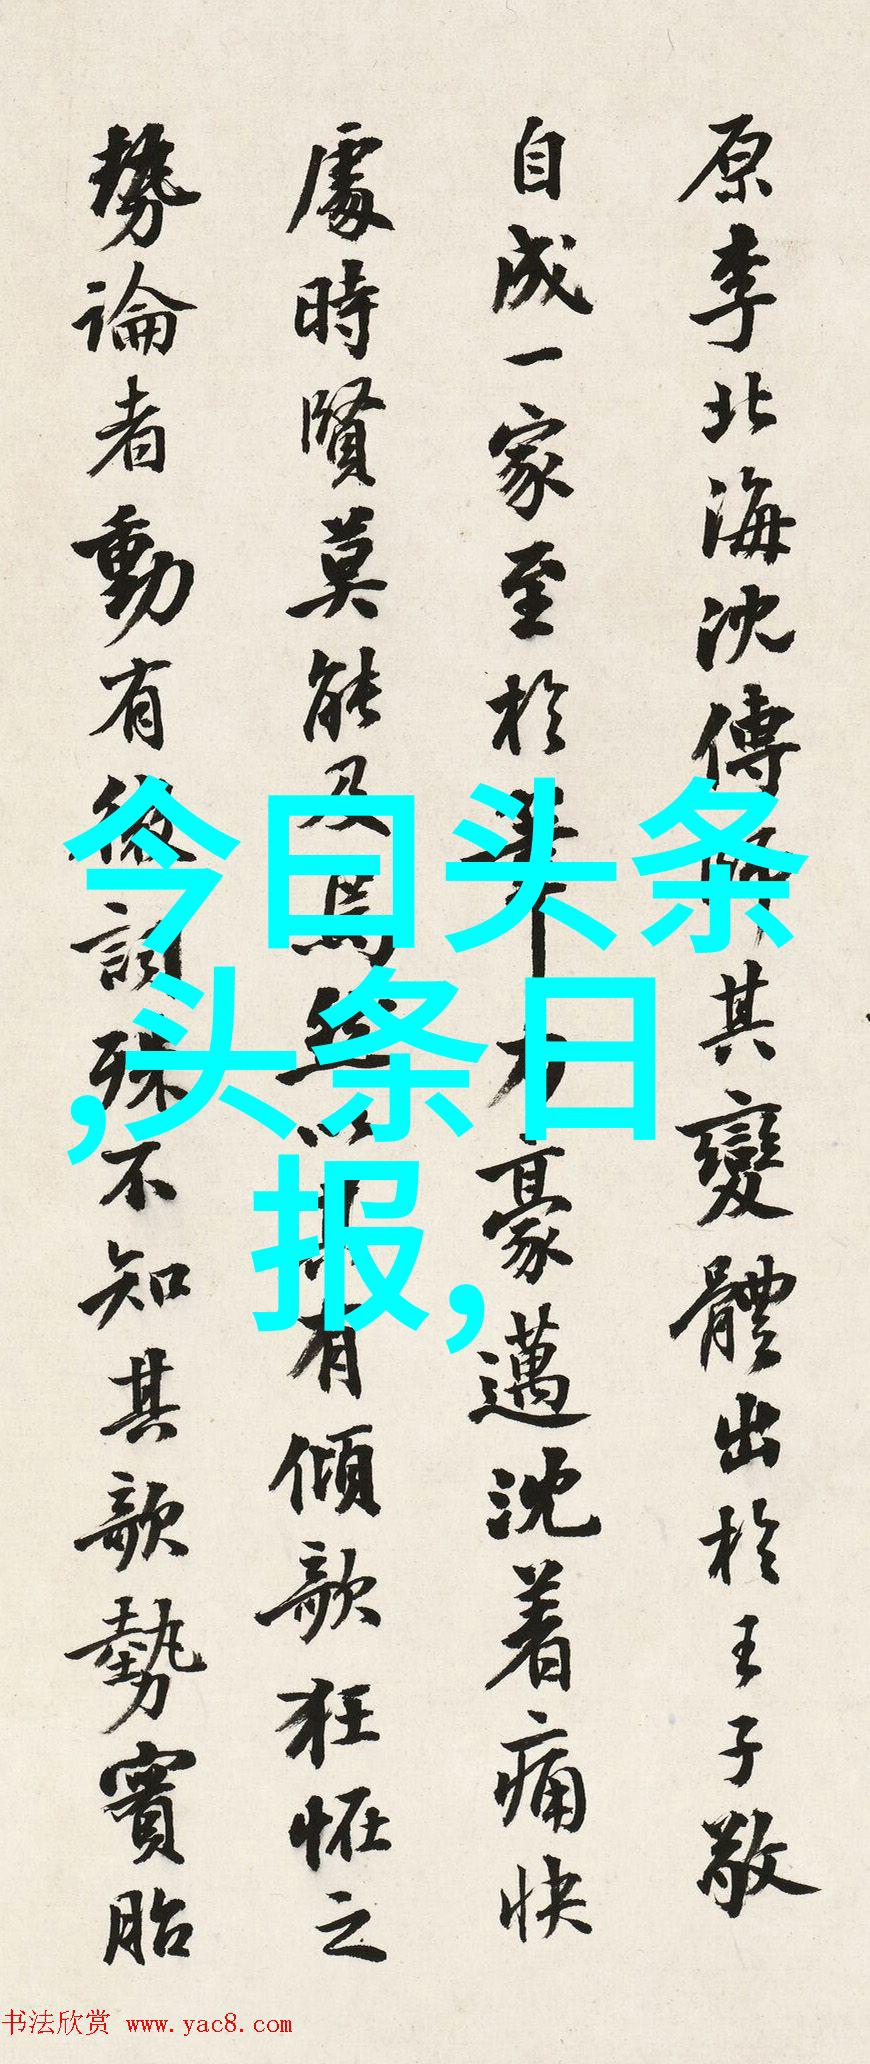 原李北海沈傳師其變體出於王子敬
自成一家至於筆力豪邁沈着痛快
處時賢莫能及焉然以其有傾欹狂怪之
勢論者動有微詞殊不知其欹勢實胎
今日头条
,头条日
报,
书法欣赏 www.yac8.com